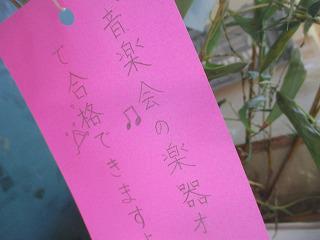 音楽会の楽器オ
で合格できます